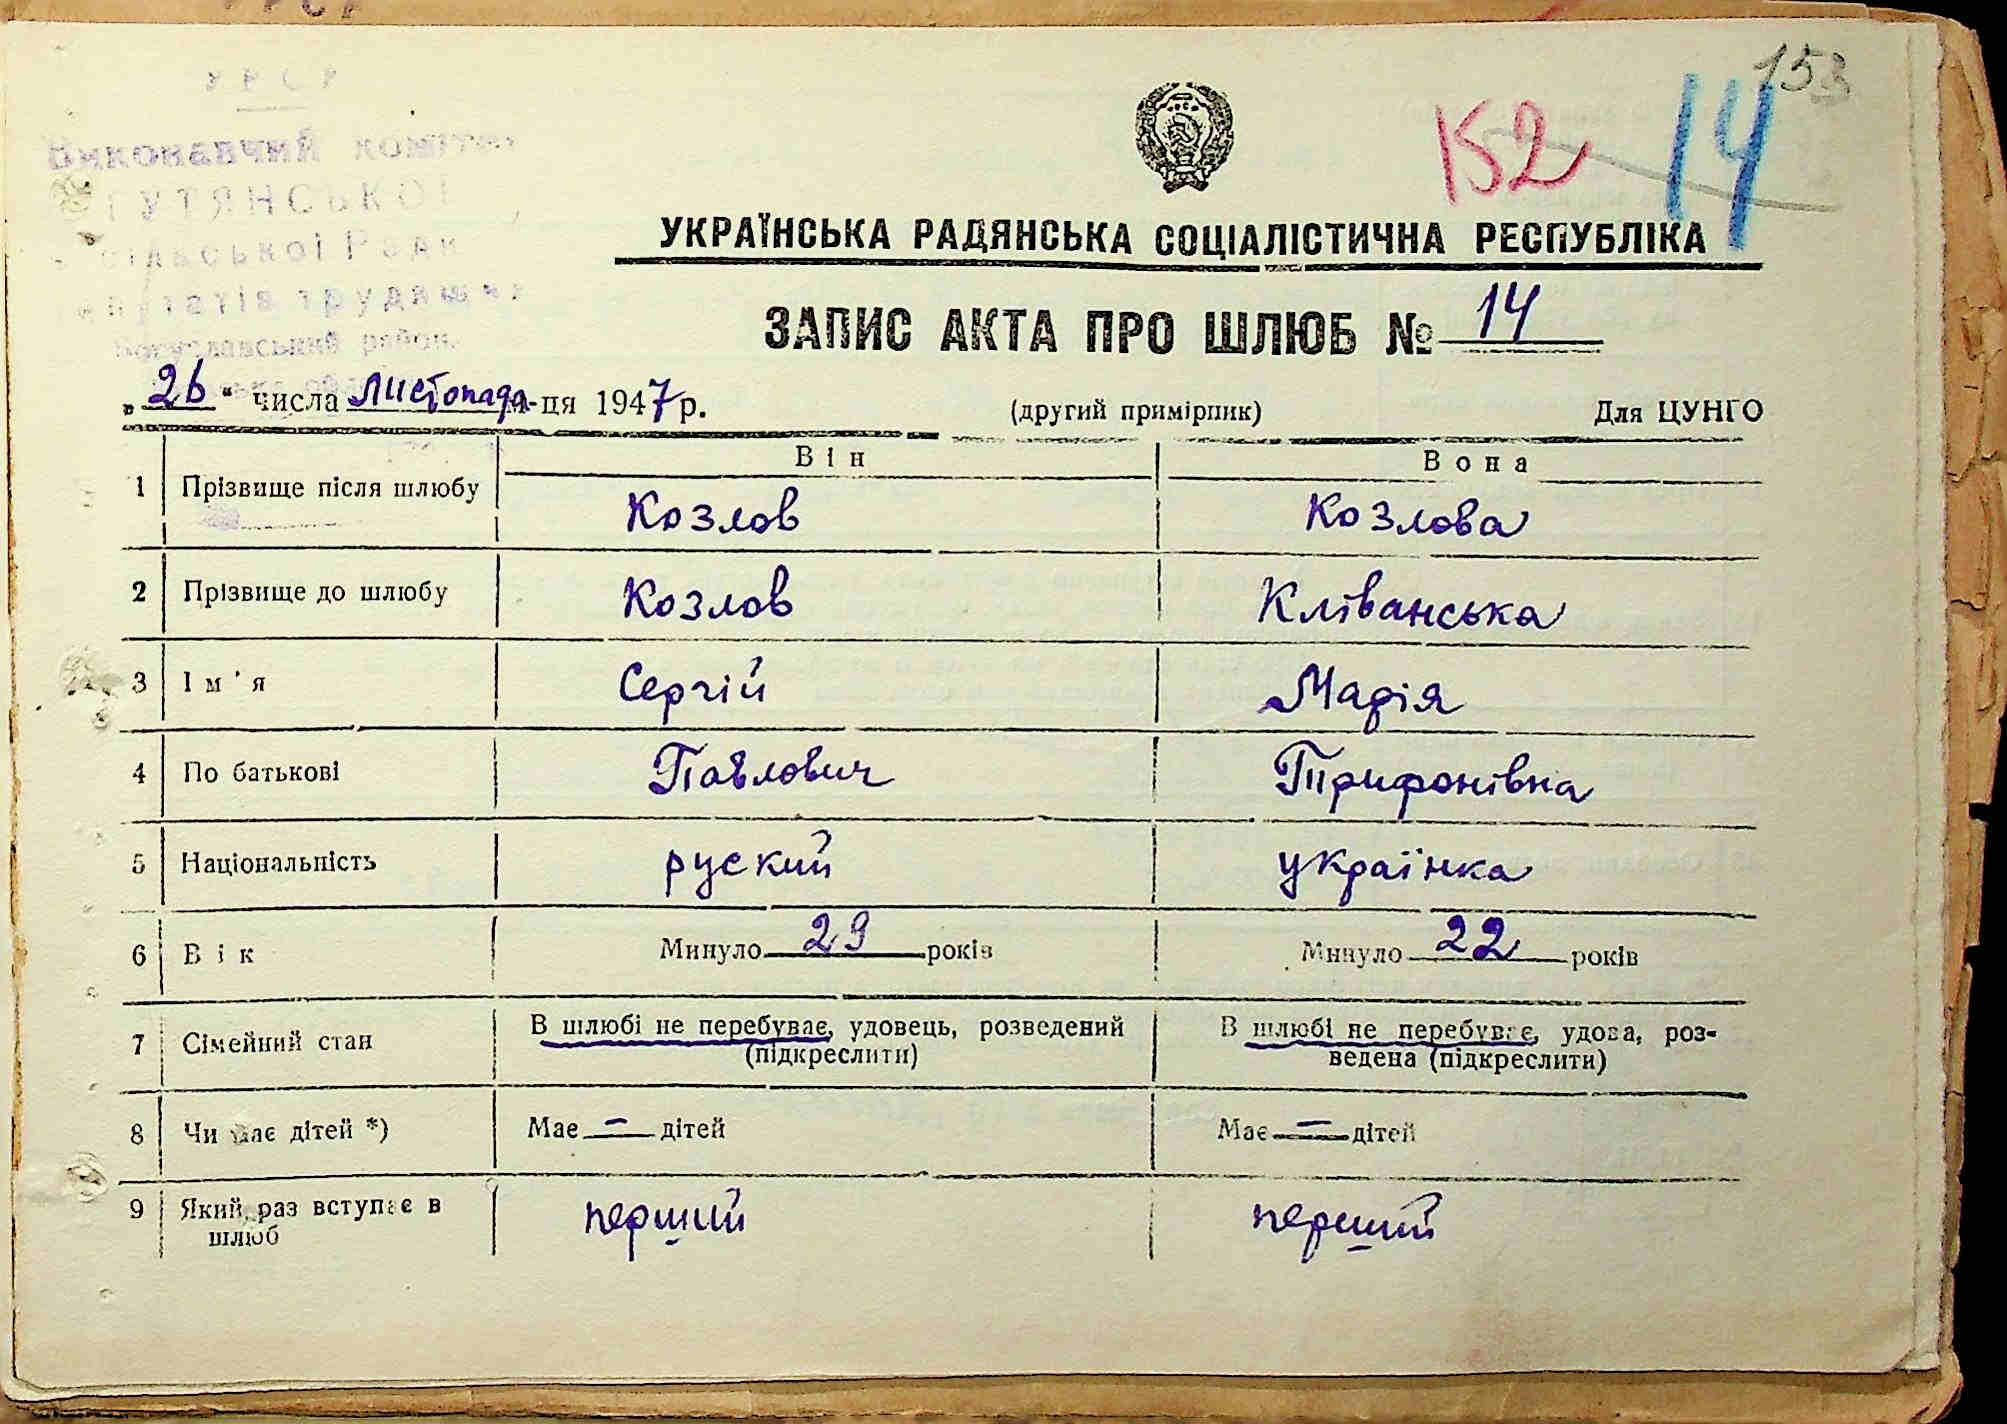 УРСР
153
152
14
Виконавчий комітет
ГУТЯНСЬКОЇ
сільської Ради
депутатів трудящих
Богуславський район
УКРАЇНСЬКА РАДЯНСЬКА СОЦІАЛІСТИЧНА РЕСПУБЛІКА
ЗАПИС АКТА ПРО ШЛЮБ № 14
„26“ числа Листопада м-ця 1947 р. (другий примірник) Для ЦУНГО
Він Вона
1 Прізвище після шлюбу Козлов Козлова
2 Прізвище до шлюбу Козлов Кліванська
3 Ім'я Сергій Марія
4 По батькові Павлович Трифонівна
5 Національність руский українка
6 Вік Минуло 29 років Минуло 22 років
7 Сімейний стан В шлюбі не перебуває, удовець, розведений (підкреслити) В шлюбі не перебуває, удова, роз-
ведена (підкреслити)
8 Чи має дітей *) Має — дітей Має — дітей
9 Який раз вступає в шлюб перший перший